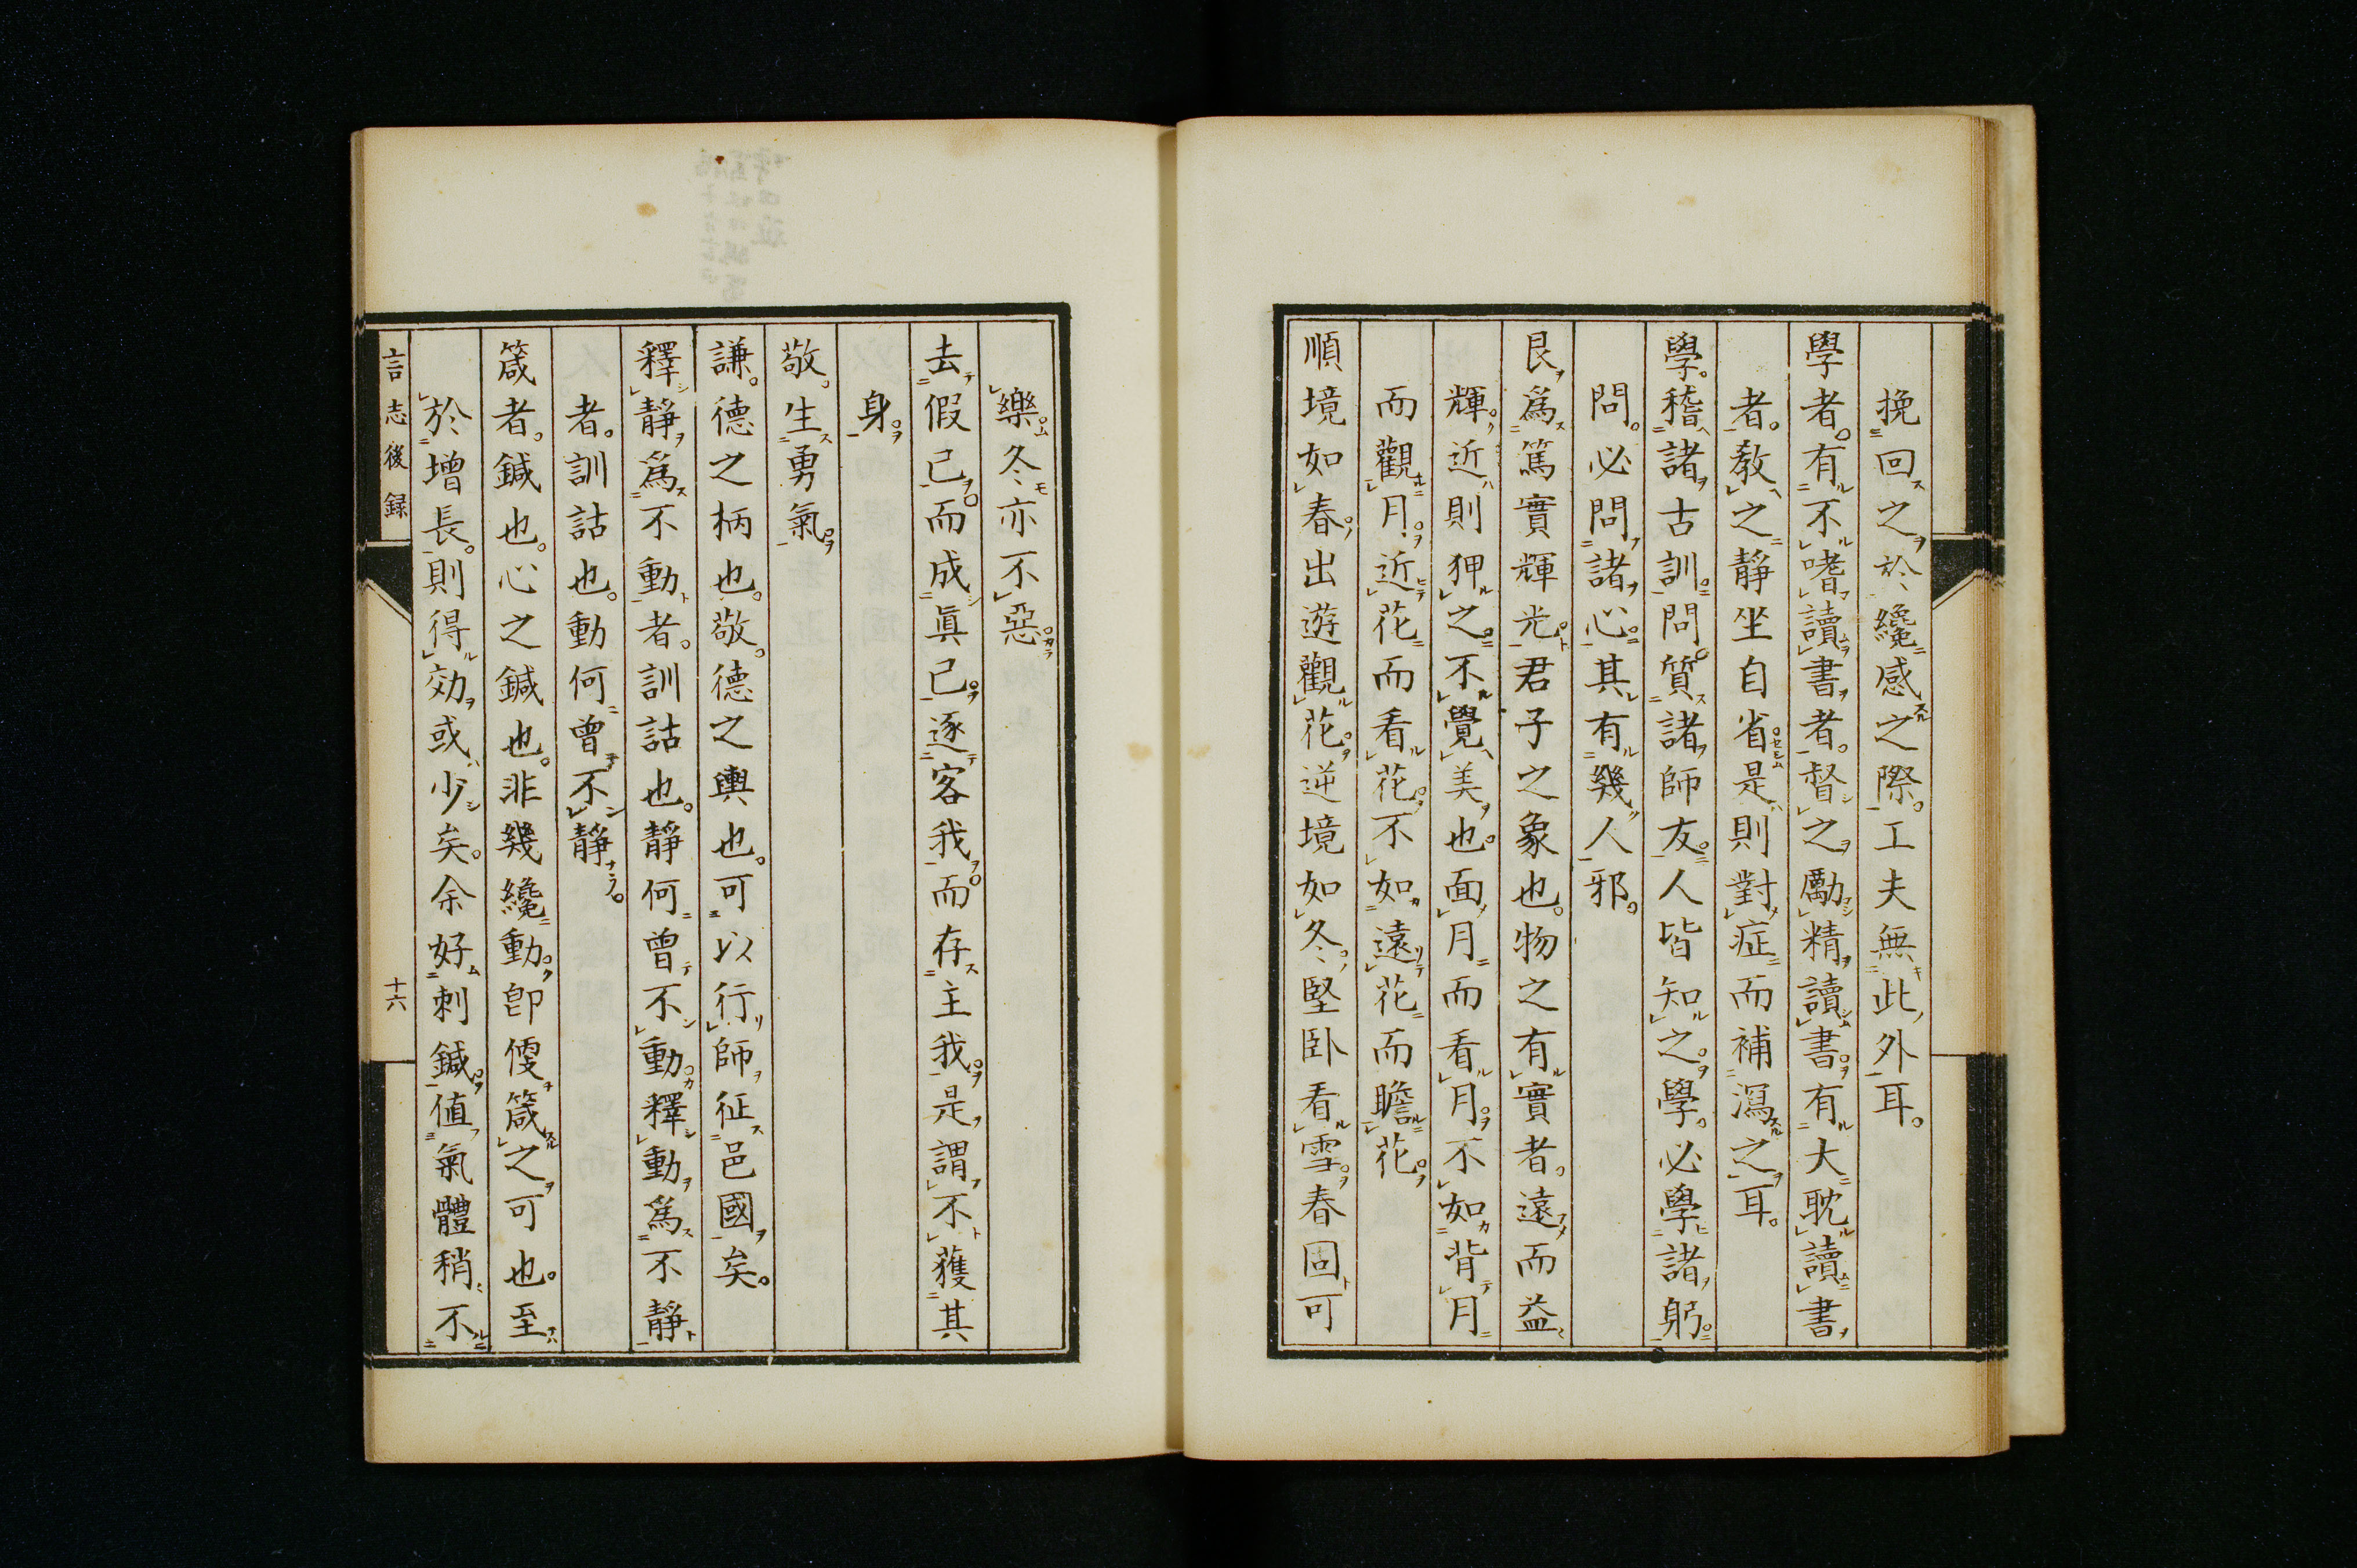 挽回之於纔感之際。工夫無此外耳。
學者。有不嗜讀書者。督之勵精讀書。有大耽讀書
者。教之靜坐自省。是則對症而補瀉之耳。
學。稽諸古訓。問。質諸師友。人皆知之。學。必學諸躬。
問。必問諸心。其有幾人邪。
艮爲篤實輝光。君子之象也。物之有實者。遠而益
輝。近則狎之。不覺美也。面月而看月。不如背月
而觀月。近花而看花。不如遠花而瞻花。
順境如春。出遊觀花。逆境如冬。堅臥看雪。春固可
樂。冬亦不惡。
去假己。而成眞己。逐客我。而存主我。是謂不獲其
身。
敬生勇氣。
謙。德之柄也。敬。德之輿也。可以行師征邑國矣。
釋靜爲不動者。訓詁也。靜何曾不動。釋動爲不靜
者。訓詁也。動何曾不靜。
箴者。鍼也。心之鍼也。非幾纔動。卽便箴之可也。至
於增長。則得効或少矣。余好刺鍼。値氣體稍不
言志後録
十六